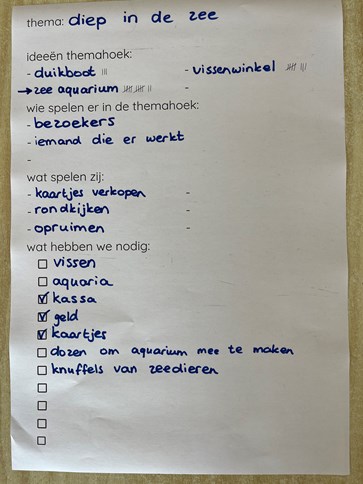 thema: diep in de zee
ideeën themahoek:
- duikboot III - vissenwinkel IIII III
→ zee aquarium IIII IIII II -
wie spelen er in de themahoek:
- bezoekers
- iemand die er werkt
-
wat spelen zij:
- kaartjes verkopen -
- rondkijken -
- opruimen -
wat hebben we nodig:
☐ vissen
☐ aquaria
☑ kassa
☑ geld
☑ kaartjes
☐ dozen om aquarium mee te maken
☐ knuffels van zeedieren
☐
☐
☐
☐